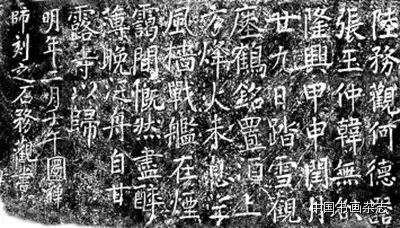 陸務觀何德器
張玉仲韓無咎
隆興甲申閏月
廿九日踏雪觀
瘞鶴銘置酒上
方烽火未息望
風檣戰艦在煙
靄間慨然盡醉
薄晚泛舟自甘
露寺以歸
明年二月壬午圜禪
師刻之石務觀書
中国书画杂志